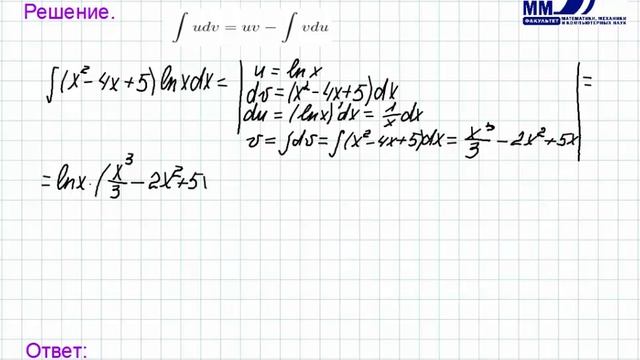 Решение.
∫ udv = uv − ∫ vdu
ММ
ФАКУЛЬТЕТ МАТЕМАТИКИ, МЕХАНИКИ И КОМПЬЮТЕРНЫХ НАУК
∫(x² − 4x + 5) ln x dx = | u = ln x | =
dv = (x² − 4x + 5) dx
du = (ln x)' dx = 1/x dx
v = ∫dv = ∫(x² − 4x + 5) dx = x³/3 − 2x² + 5x
= ln x · (x³/3 − 2x² + 5
Ответ: